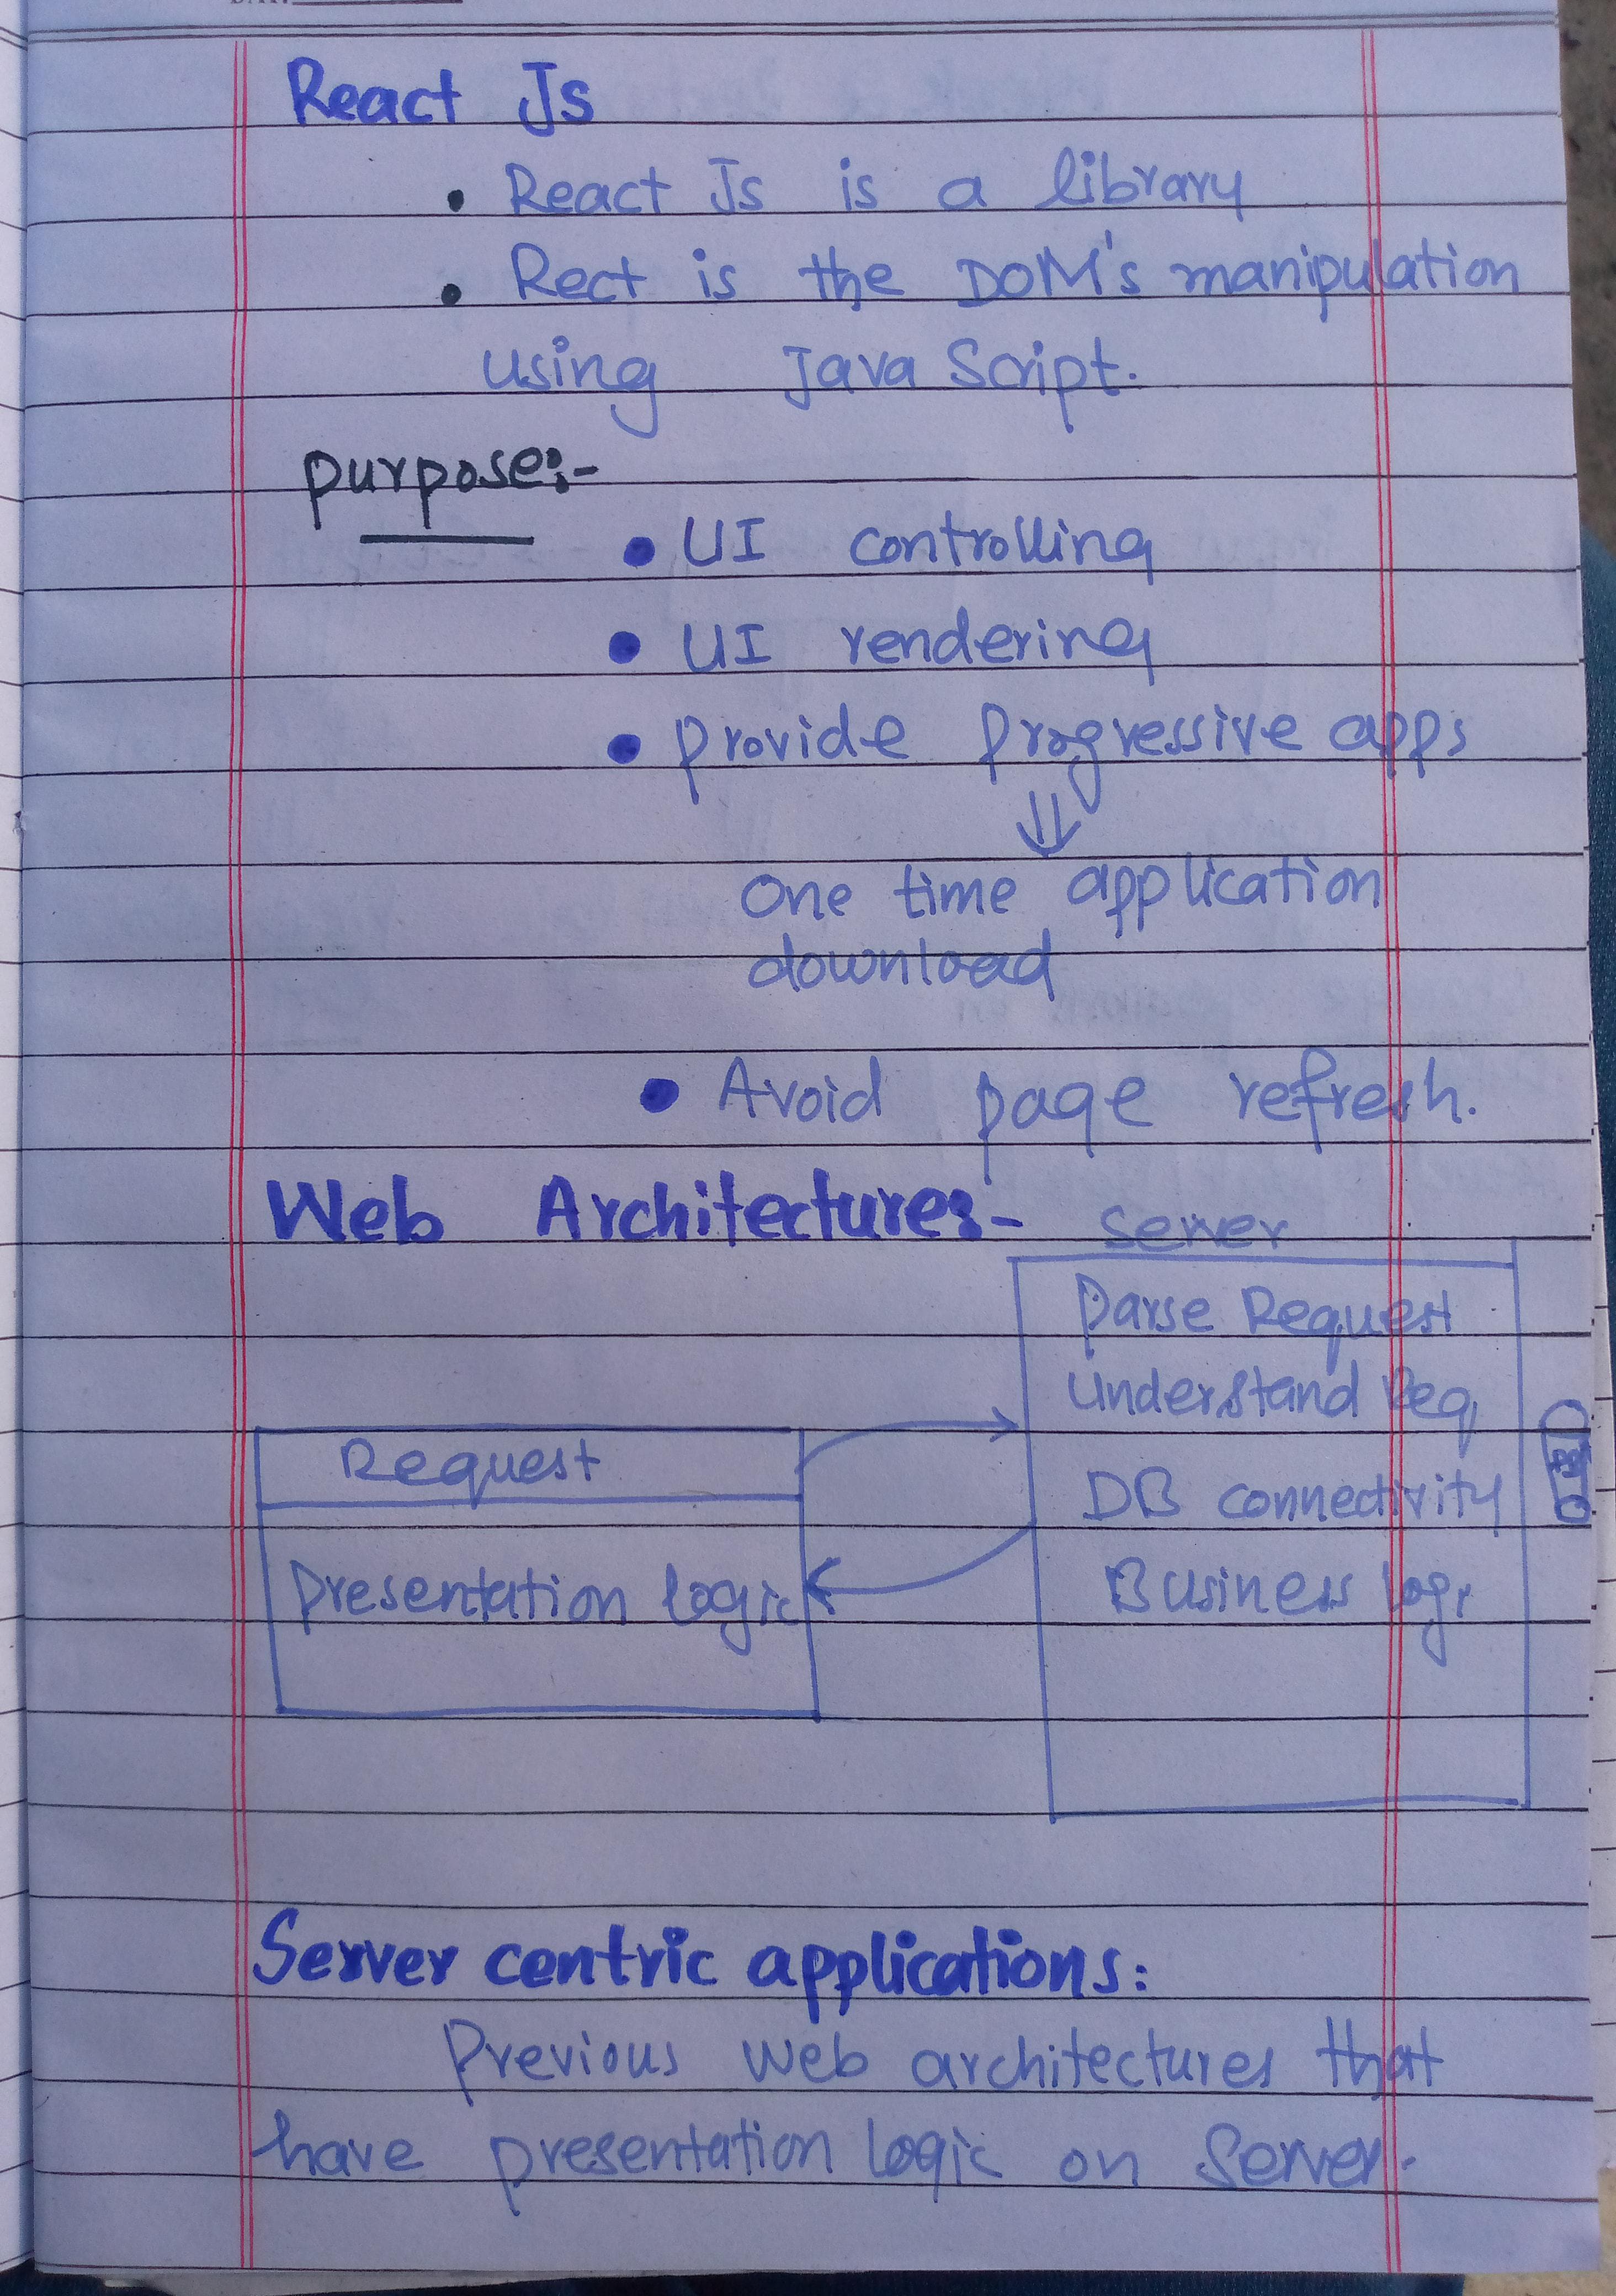 React Js
• React Js is a library
• Rect is the DOM's manipulation
using Java Script.
purpose:-
• UI controlling
• UI rendering
• provide progressive apps
⇓
One time application
download
• Avoid page refresh.
Web Architectures-
Server
Parse Request
Understand Req
DB connectivity
Business logi
Request
Presentation logic
Server centric applications:
Previous web architectures that
have presentation logic on Server.